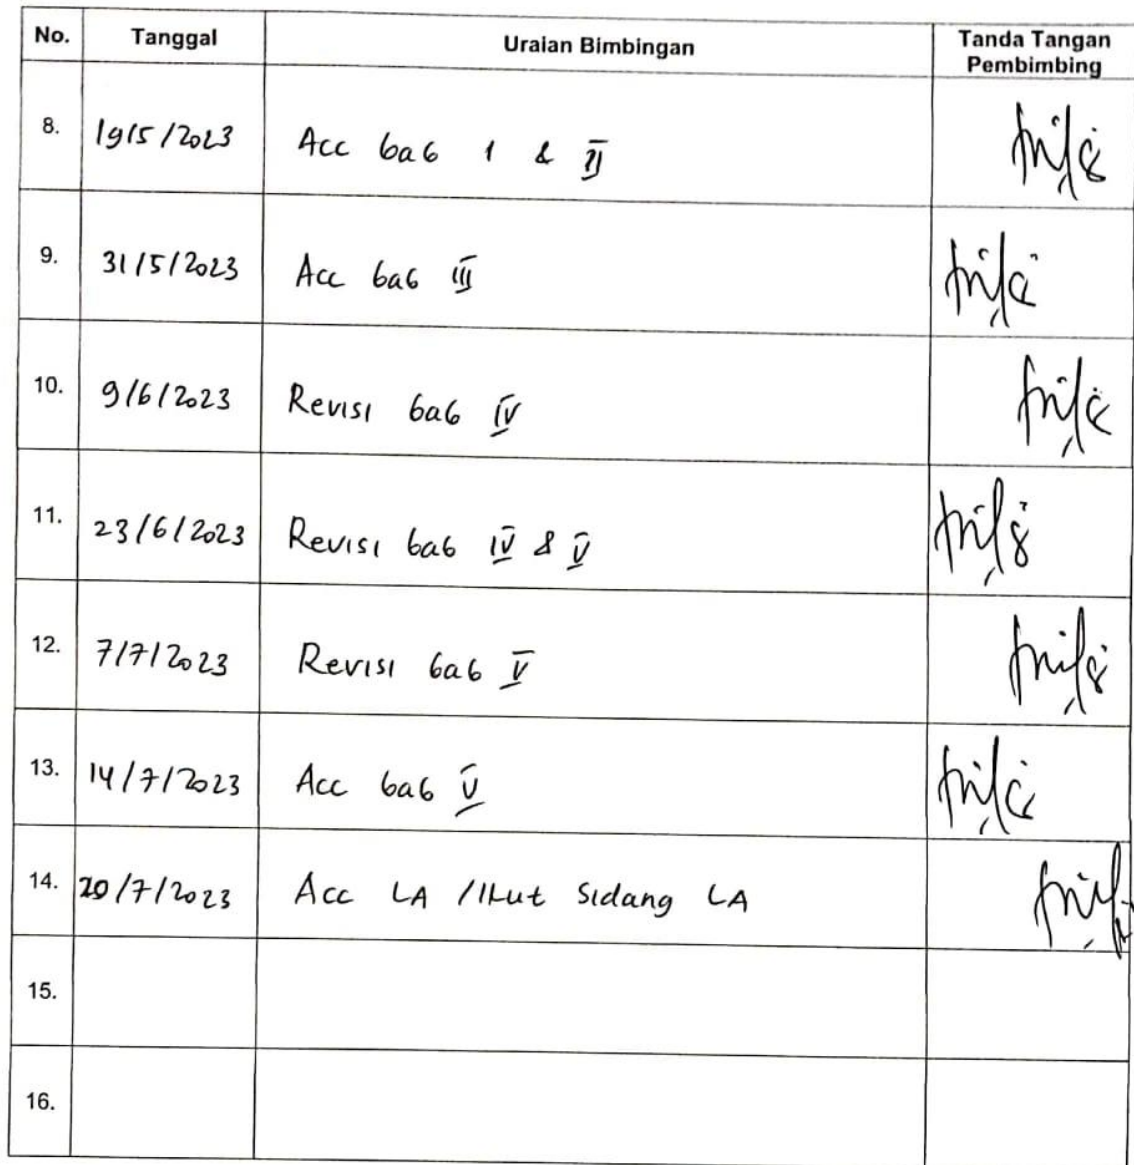 No. Tanggal Uraian Bimbingan Tanda Tangan
Pembimbing
8. 19/5/2023 Acc bab 1 & II
9. 31/5/2023 Acc bab III
10. 9/6/2023 Revisi bab IV
11. 23/6/2023 Revisi bab IV & V
12. 7/7/2023 Revisi bab V
13. 14/7/2023 Acc bab V
14. 20/7/2023 Acc LA /Ikut Sidang LA
15.
16.